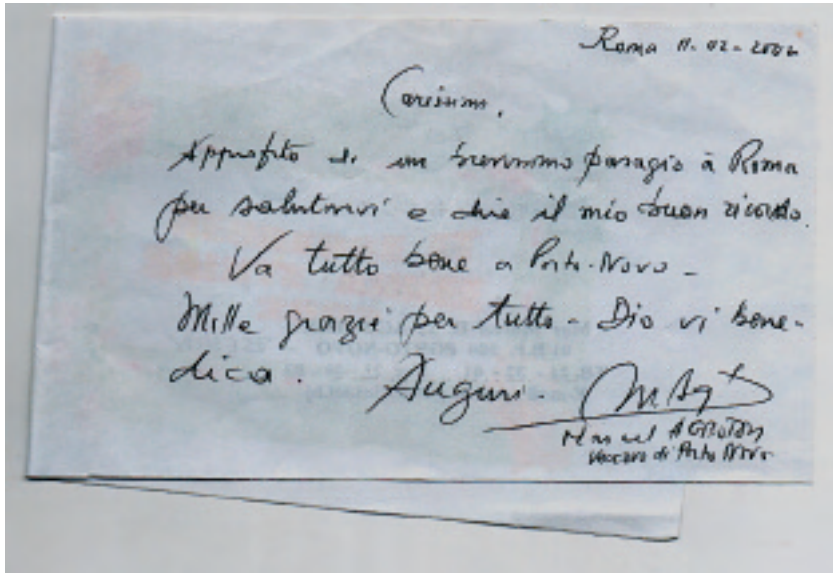 Roma 11-02-2002
Carissimi,
Approfitto di un brevissimo passagio a Roma
per salutarvi e dire il mio buon ricordo.
Va tutto bene a Porto-Novo -
Mille grazie per tutto - Dio vi bene-
dica. Auguri.
AGBOTON
Vescovo di Porto Novo